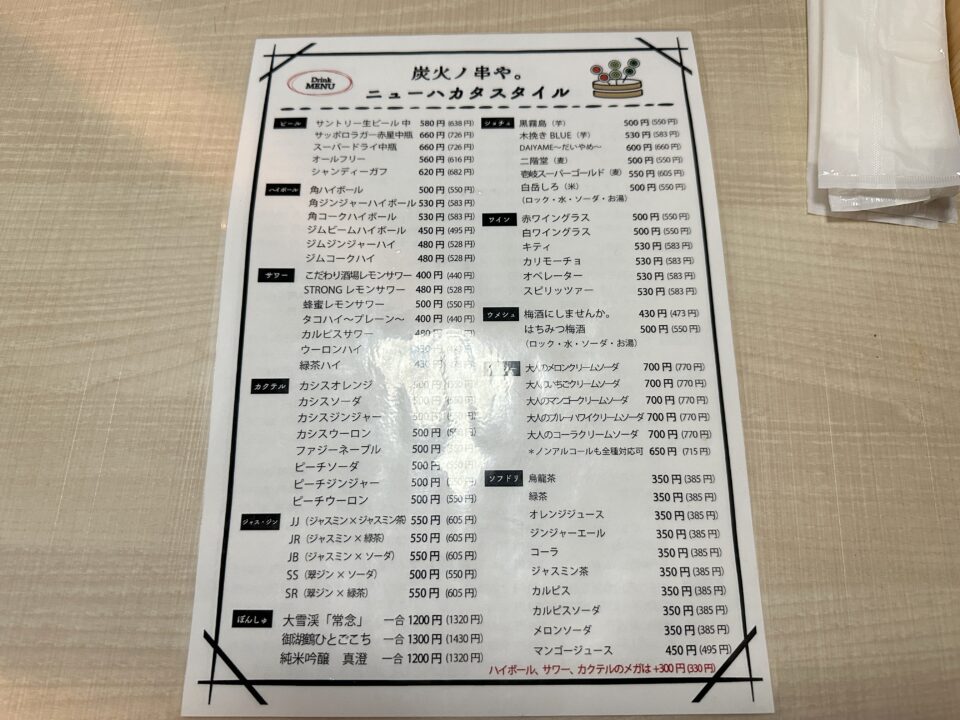 Drink
MENU
炭火ノ串や。
ニューハカタスタイル
ビール
サントリー生ビール 中 580円 (638円)
サッポロラガー赤星中瓶 660円 (726円)
スーパードライ中瓶 660円 (726円)
オールフリー 560円 (616円)
シャンディーガフ 620円 (682円)
ハイボール
角ハイボール 500円 (550円)
角ジンジャーハイボール 530円 (583円)
角コークハイボール 530円 (583円)
ジムビームハイボール 450円 (495円)
ジムジンジャーハイ 480円 (528円)
ジムコークハイ 480円 (528円)
サワー
こだわり酒場レモンサワー 400円 (440円)
STRONG レモンサワー 480円 (528円)
蜂蜜レモンサワー 500円 (550円)
タコハイ〜プレーン〜 400円 (440円)
カルピスサワー 480円
ウーロンハイ
緑茶ハイ
カクテル
カシスオレンジ 500円
カシスソーダ 500円
カシスジンジャー 500円
カシスウーロン 500円 (550円)
ファジーネーブル 500円
ピーチソーダ 500円
ピーチジンジャー 500円 (550円)
ピーチウーロン 500円 (550円)
ジャス・ジン
JJ (ジャスミン×ジャスミン茶) 550円 (605円)
JR (ジャスミン × 緑茶) 550円 (605円)
JB (ジャスミン × ソーダ) 550円 (605円)
SS (翠ジン × ソーダ) 500円 (550円)
SR (翠ジン × 緑茶) 550円 (605円)
ぽんしゅ
大雪渓「常念」 一合 1200円 (1320円)
御湖鶴ひとごこち 一合 1300円 (1430円)
純米吟醸 真澄 一合 1200円 (1320円)
ショチュ
黒霧島 (芋) 500円 (550円)
木挽き BLUE (芋) 530円 (583円)
DAIYAME〜だいやめ〜 600円 (660円)
二階堂 (麦) 500円 (550円)
壱岐スーパーゴールド (麦) 550円 (605円)
白岳しろ (米) 500円 (550円)
(ロック・水・ソーダ・お湯)
ワイン
赤ワイングラス 500円 (550円)
白ワイングラス 500円 (550円)
キティ 530円 (583円)
カリモーチョ 530円 (583円)
オペレーター 530円 (583円)
スピリッツァー 530円 (583円)
ウメシュ
梅酒にしませんか。 430円 (473円)
はちみつ梅酒 500円 (550円)
(ロック・水・ソーダ・お湯)
大人のメロンクリームソーダ 700円 (770円)
大人のいちごクリームソーダ 700円 (770円)
大人のマンゴークリームソーダ 700円 (770円)
大人のブルーハワイクリームソーダ 700円 (770円)
大人のコーラクリームソーダ 700円 (770円)
＊ノンアルコールも全種対応可 650円 (715円)
ソフドリ
烏龍茶 350円 (385円)
緑茶 350円 (385円)
オレンジジュース 350円 (385円)
ジンジャーエール 350円 (385円)
コーラ 350円 (385円)
ジャスミン茶 350円 (385円)
カルピス 350円 (385円)
カルピスソーダ 350円 (385円)
メロンソーダ 350円 (385円)
マンゴージュース 450円 (495円)
ハイボール、サワー、カクテルのメガは +300円 (330円)